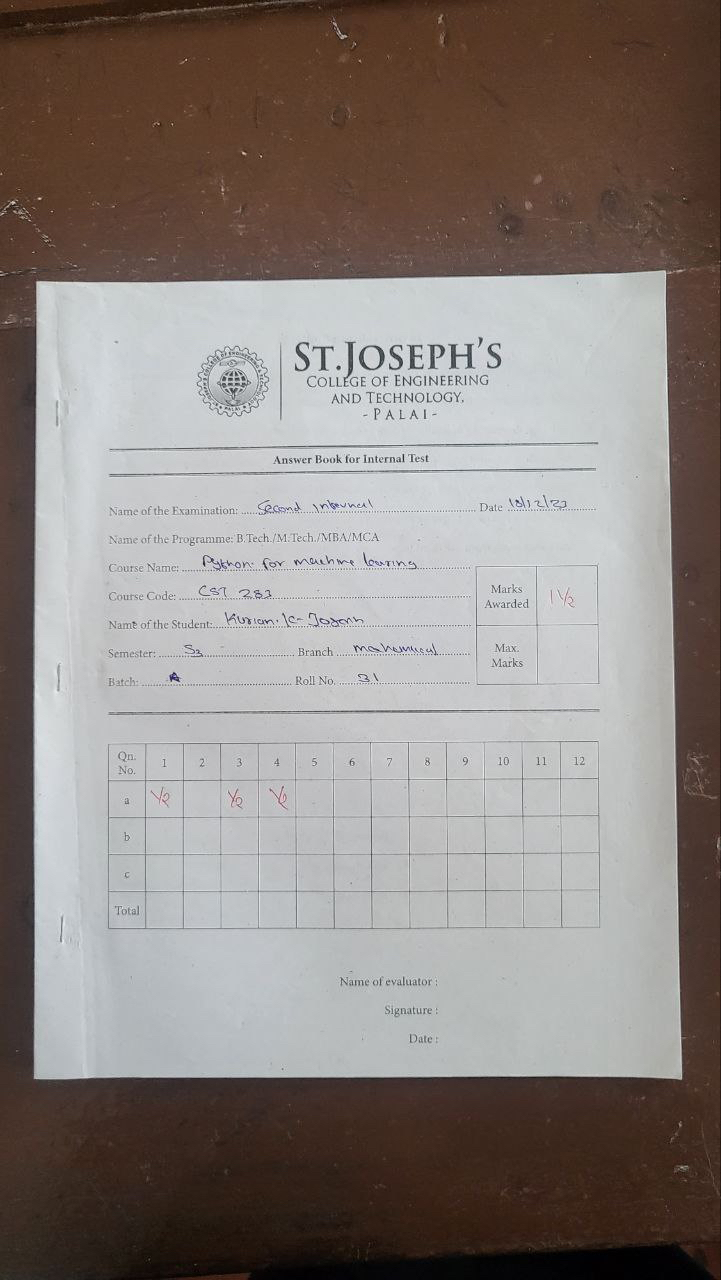 ST.JOSEPH'S
COLLEGE OF ENGINEERING
AND TECHNOLOGY,
- PALAI -
Answer Book for Internal Test
Name of the Examination: Second Internal Date
Name of the Programme: B.Tech./M.Tech./MBA/MCA
Course Name: Python for machine learing
Course Code: CST 283
Name of the Student: Kurian. K
Marks Awarded 1 1/2
Semester: S3 Branch
Max. Marks
Batch: A Roll No. 31
Qn. No. 1 2 3 4 5 6 7 8 9 10 11 12
a 1/2 1/2 1/2
b
c
Total
Name of evaluator :
Signature :
Date :